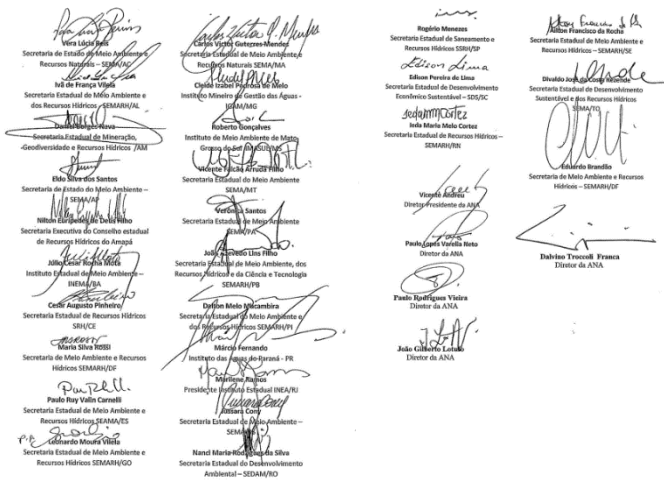 Vera Lúcia Reis
Secretaria de Estado de Meio Ambiente e
Recursos Naturais – SEMA/AC
Ivã de França Vilela
Secretaria Estadual de Meio Ambiente e
dos Recursos Hídricos – SEMARH/AL
Daniel Borges Nava
Secretaria Estadual de Mineração,
Geodiversidade e Recursos Hídricos /AM
Eldo Silva dos Santos
Secretaria de Estado do Meio Ambiente –
SEMA/AP
Nilton Eurípedes de Deus Filho
Secretaria Executiva do Conselho estadual
de Recursos Hídricos do Amapá
Júlio César Rocha Mota
Instituto Estadual de Meio Ambiente –
INEMA/BA
Cesar Augusto Pinheiro
Secretaria Estadual de Recursos Hídricos
SRH/CE
Maria Silva Rossi
Secretaria de Meio Ambiente e Recursos
Hídricos SEMARH/DF
Paulo Ruy Valin Carnelli
Secretaria Estadual de Meio Ambiente e
Recursos Hídricos SEAMA/ES
P.P.
Leonardo Moura Vilela
Secretaria Estadual de Meio Ambiente e
Recursos Hídricos SEMARH/GO
Carlos Victor Guterres Mendes
Secretaria Estadual de Meio Ambiente e
Recursos Naturais SEMA/MA
Cleide Izabel Pedrosa de Melo
Instituto Mineiro de Gestão das Águas -
IGAM/MG
Roberto Gonçalves
Instituto de Meio Ambiente de Mato
Grosso do Sul IMASUL/MS
Vicente Falcão Arruda Filho
Secretaria Estadual de Meio Ambiente
SEMA/MT
Verônica Santos
Secretaria Estadual de Meio Ambiente
SEMA/PA
João Azevedo Lins Filho
Secretaria Estadual de Meio Ambiente, dos
Recursos Hídricos e da Ciência e Tecnologia
SEMARH/PB
Dalton Melo Macambira
Secretaria Estadual de Meio Ambiente e
dos Recursos Hídricos SEMARH/PI
Márcio Fernando
Instituto das Águas do Paraná - PR
Marilene Ramos
Presidente Instituto Estadual INEA/RJ
Jussara Cony
Secretaria Estadual de Meio Ambiente –
Nanci Maria Rodrigues da Silva
Secretaria Estadual do Desenvolvimento
Ambiental – SEDAM/RO
Rogério Menezes
Secretaria Estadual de Saneamento e
Recursos Hídricos SSRH/SP
Edison Lima
Edison Pereira de Lima
Secretaria Estadual de Desenvolvimento
Econômico Sustentável – SDS/SC
Ieda Maria Melo Cortez
Secretaria Estadual de Recursos Hídricos –
SEMARH/RN
Vicente Andreu
Diretor-Presidente da ANA
Paulo Lopes Varella Neto
Diretor da ANA
Paulo Rodrigues Vieira
Diretor da ANA
João Gilberto Lotufo
Diretor da ANA
Ailton Francisco da Rocha
Secretaria Estadual de Meio Ambiente e
Recursos Hídricos – SEMARH/SE
Divaldo José da Costa Rezende
Secretaria Estadual de Desenvolvimento
Sustentável e dos Recursos Hídricos
SEMA/TO
Eduardo Brandão
Secretaria de Meio Ambiente e Recursos
Hídricos – SEMARH/DF
Dalvino Troccoli Franca
Diretor da ANA